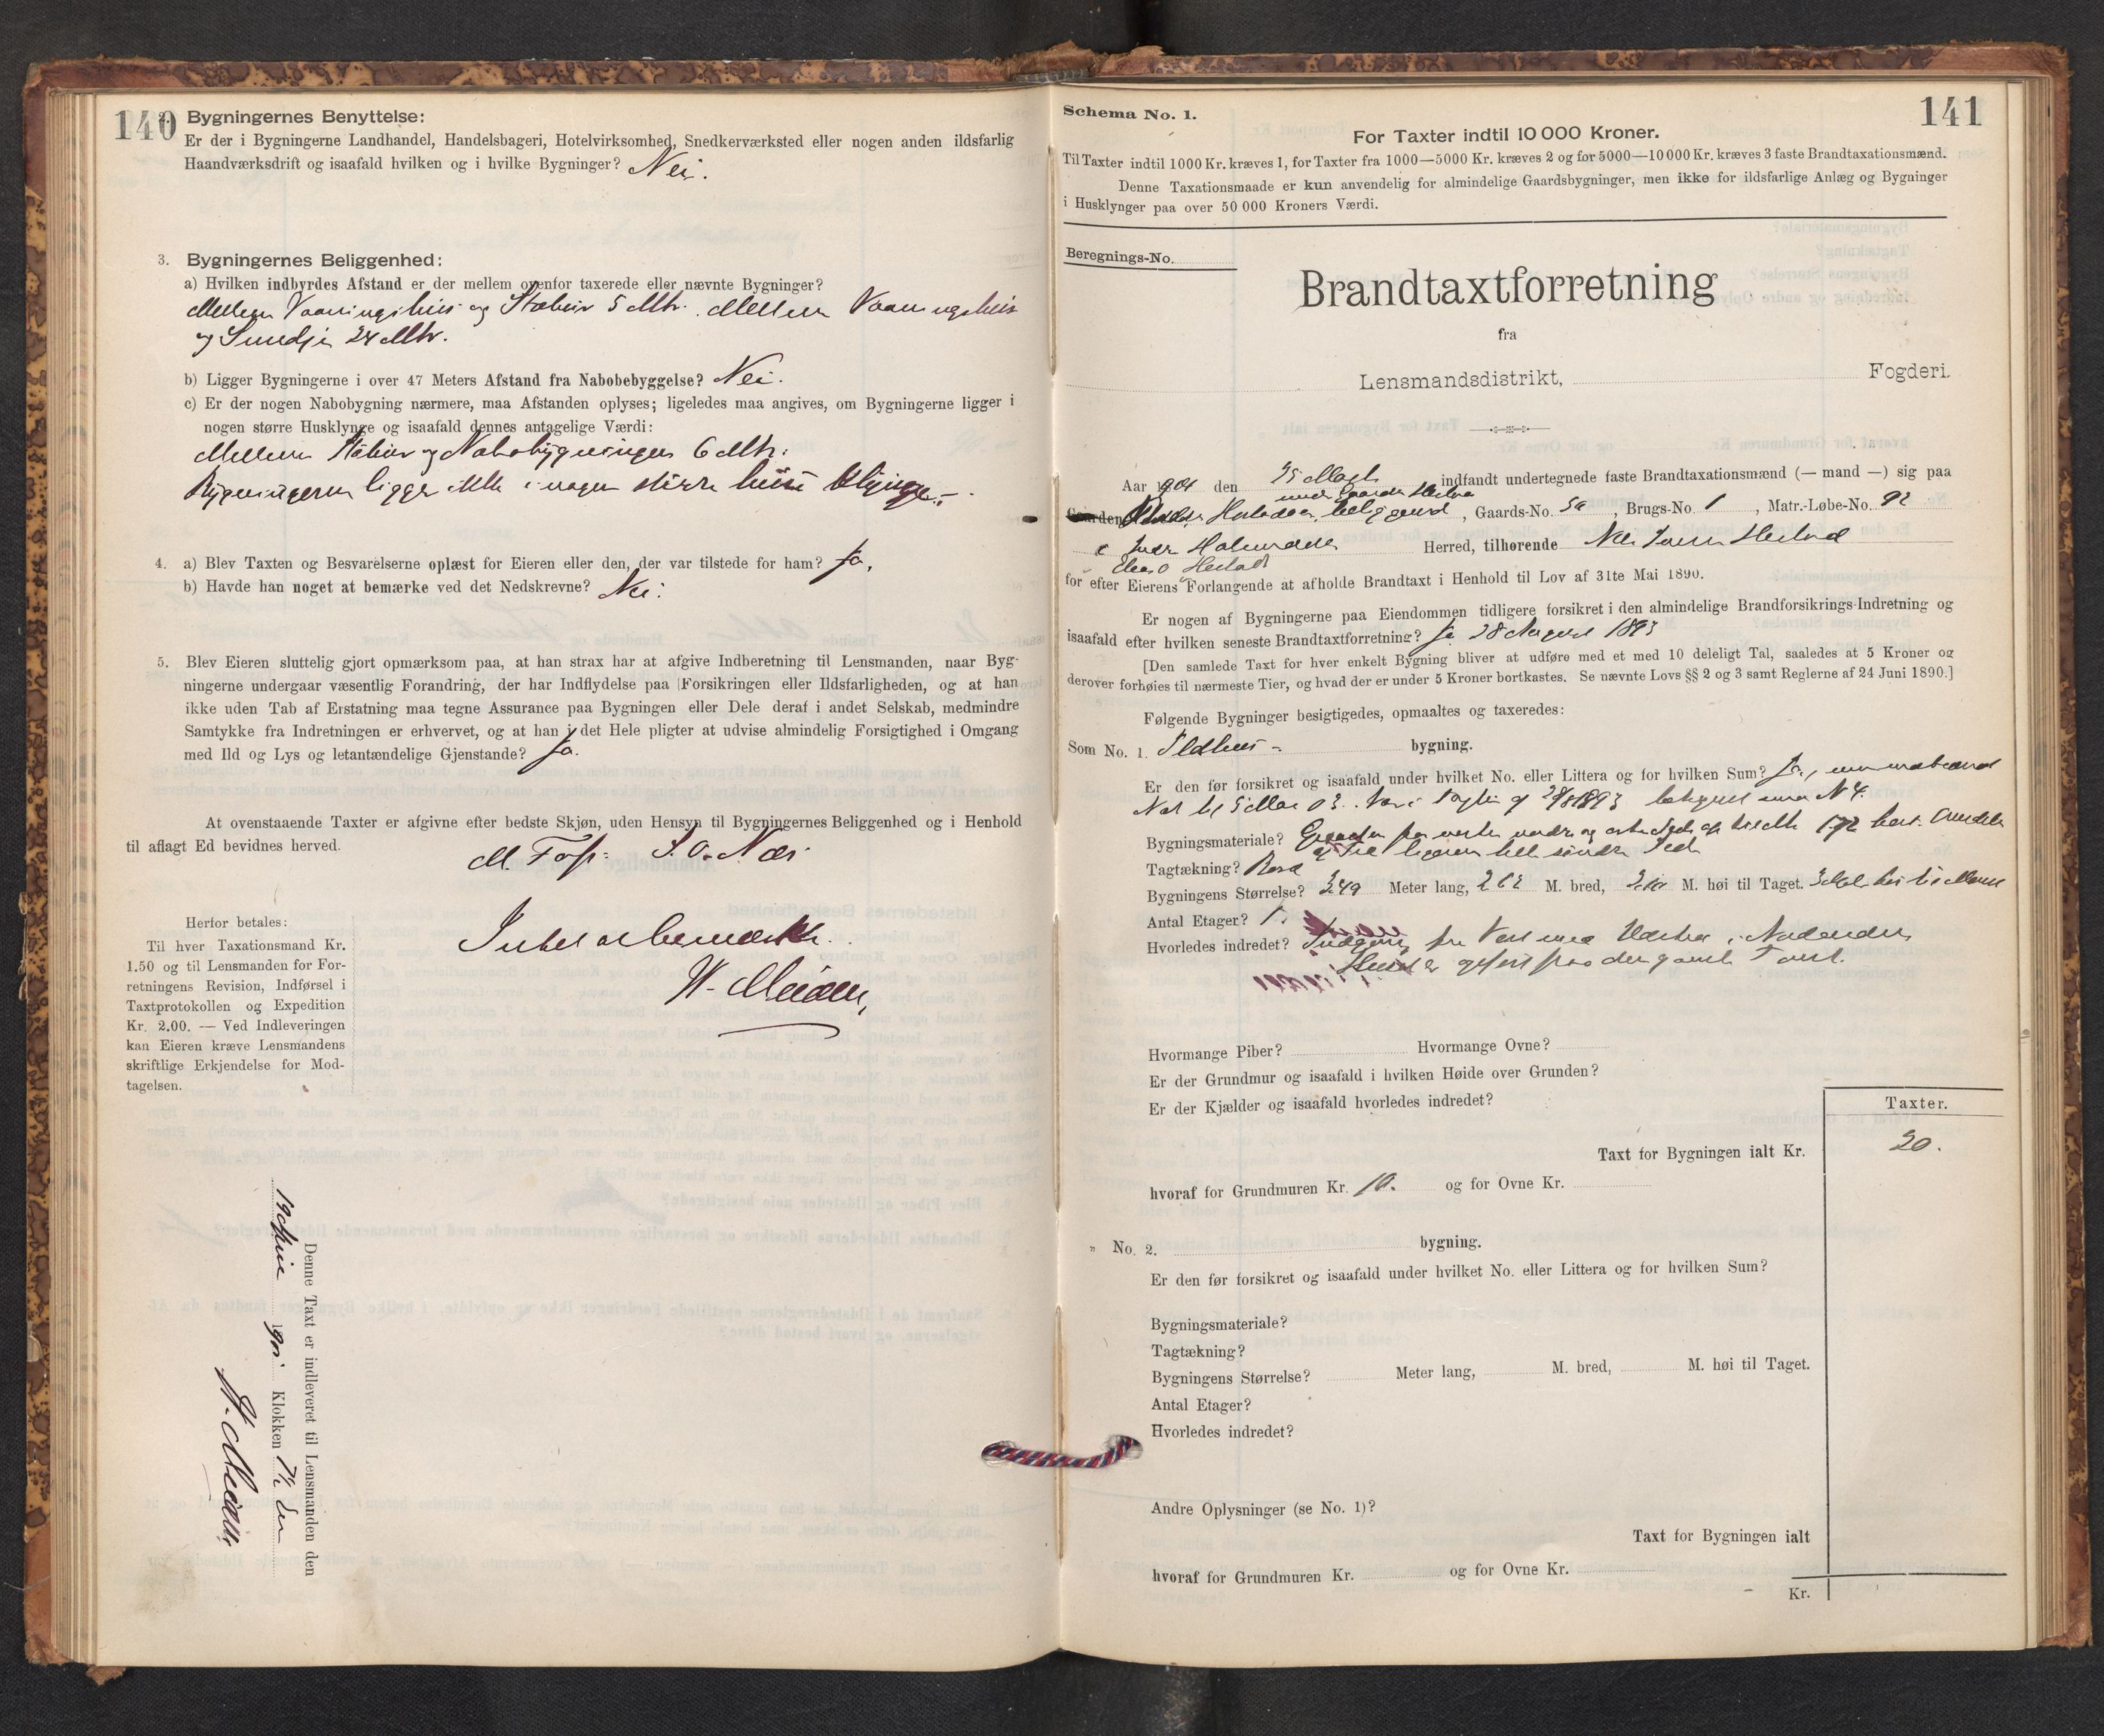 140
Bygningernes Benyttelse:
Er der i Bygningerne Landhandel, Handelsbageri, Hotelvirksomhed, Snedkerværksted eller nogen anden ildsfarlig
Haandværksdrift og isaafald hvilken og i hvilke Bygninger? Nei.
3. Bygningernes Beliggenhed:
a) Hvilken indbyrdes Afstand er der mellem ovenfor taxerede eller nævnte Bygninger?
Mellem Vaaningshus og Stabur 5 Mtr. Mellem Vaaningshus
og Smedje 24 Mtr.
b) Ligger Bygningerne i over 47 Meters Afstand fra Nabobebyggelse? Nei.
c) Er der nogen Nabobygning nærmere, maa Afstanden oplyses; ligeledes maa angives, om Bygningerne ligger i
nogen større Husklynge og isaafald dennes antagelige Værdi:
Mellem Stabur og Nabobygningen 6 Mtr.
Bygningerne ligger ikke i nogen større huse klynge.
4. a) Blev Taxten og Besvarelserne oplæst for Eieren eller den, der var tilstede for ham? Ja.
b) Havde han noget at bemærke ved det Nedskrevne? Nei.
5. Blev Eieren sluttelig gjort opmærksom paa, at han strax har at afgive Indberetning til Lensmanden, naar Byg-
ningerne undergaar væsentlig Forandring, der har Indflydelse paa Forsikringen eller Ildsfarligheden, og at han
ikke uden Tab af Erstatning maa tegne Assurance paa Bygningen eller Dele deraf i andet Selskab, medmindre
Samtykke fra Indretningen er erhvervet, og at han i det Hele pligter at udvise almindelig Forsigtighed i Omgang
med Ild og Lys og letantændelige Gjenstande? Ja.
At ovenstaaende Taxter er afgivne efter bedste Skjøn, uden Hensyn til Bygningernes Beliggenhed og i Henhold
til aflagt Ed bevidnes herved.
M. Foss
Intet at bemærke.
Herfor betales:
Til hver Taxationsmand Kr.
1.50 og til Lensmanden for For-
retningens Revision, Indførsel i
Taxtprotokollen og Expedition
Kr. 2.00. — Ved Indleveringen
kan Eieren kræve Lensmandens
skriftlige Erkjendelse for Mod-
tagelsen.
Denne Taxt er indleveret til Lensmanden den
190 Klokken
141
Schema No. 1.
For Taxter indtil 10 000 Kroner.
Til Taxter indtil 1000 Kr. kræves 1, for Taxter fra 1000—5000 Kr. kræves 2 og for 5000—10000 Kr. kræves 3 faste Brandtaxationsmænd.
Denne Taxationsmaade er kun anvendelig for almindelige Gaardsbygninger, men ikke for ildsfarlige Anlæg og Bygninger
i Husklynger paa over 50 000 Kroners Værdi.
Beregnings-No.
Brandtaxtforretning
fra
Lensmandsdistrikt, Fogderi.
Aar 1904 den 25 indfandt undertegnede faste Brandtaxationsmænd (— mand —) sig paa
under Gaarden Hestad
Gaarden , Gaards-No. 50, Brugs-No. 1, Matr.-Løbe-No. 92
i Indre Holmedal Herred, tilhørende Hestad
Hestad
for efter Eierens Forlangende at afholde Brandtaxt i Henhold til Lov af 31te Mai 1890.
Er nogen af Bygningerne paa Eiendommen tidligere forsikret i den almindelige Brandforsikrings-Indretning og
isaafald efter hvilken seneste Brandtaxtforretning? Ja 28 August 1893
[Den samlede Taxt for hver enkelt Bygning bliver at udføre med et med 10 deleligt Tal, saaledes at 5 Kroner og
derover forhøies til nærmeste Tier, og hvad der er under 5 Kroner bortkastes. Se nævnte Lovs §§ 2 og 3 samt Reglerne af 24 Juni 1890.]
Følgende Bygninger besigtigedes, opmaaltes og taxeredes:
Som No. 1. Ildhus- bygning.
Er den før forsikret og isaafald under hvilket No. eller Littera og for hvilken Sum? Ja,
Bygningsmateriale?
Tagtækning? Bord
Bygningens Størrelse? Meter lang, M. bred, M. høi til Taget.
Antal Etager? 1.
Hvorledes indredet? Indgang fra Vest med
Huset er opført paa den gamle Tomt.
Hvormange Piber? Hvormange Ovne?
Er der Grundmur og isaafald i hvilken Høide over Grunden?
Er der Kjælder og isaafald hvorledes indredet?
Taxter.
Taxt for Bygningen ialt Kr. 20.
hvoraf for Grundmuren Kr. 10. og for Ovne Kr.
" No. 2. bygning.
Er den før forsikret og isaafald under hvilket No. eller Littera og for hvilken Sum?
Bygningsmateriale?
Tagtækning?
Bygningens Størrelse? Meter lang, M. bred, M. høi til Taget.
Antal Etager?
Hvorledes indredet?
Andre Oplysninger (se No. 1)?
Taxt for Bygningen ialt
hvoraf for Grundmuren Kr. og for Ovne Kr.
Kr.